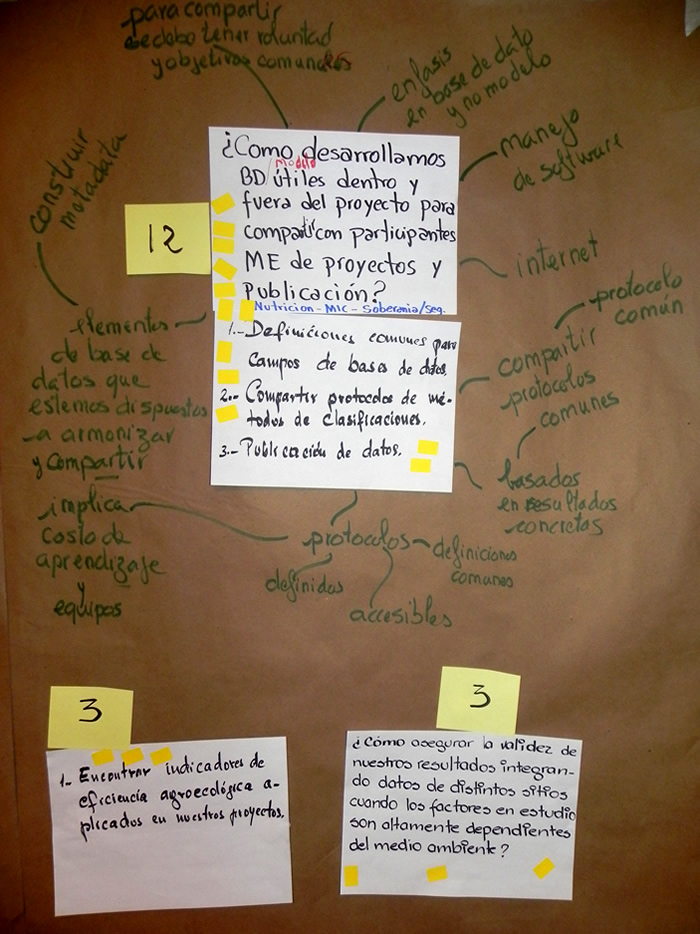 para compartir
se debe tener voluntad
y objetivos comunes
enfasis
en base de dato
y no modelo
manejo
de software
internet
construir
metadata
12
¿Como desarrollamos
modelo
BD/útiles dentro y
fuera del proyecto para
compartir con participantes
ME de proyectos y
Publicación?
Nutricion - MIC - Soberania/Seg.
1.- Definiciones comunes para
campos de bases de datos.
2.- Compartir protocolos de mé-
todos de clasificaciones.
3.- Publicación de datos.
elementos
de base de
datos que
estemos dispuestos
a armonizar
y compartir
implica
costo de
aprendizaje
y
equipos
protocolo
común
compartir
protocolos
comunes
basados
en resultados
concretos
protocolos
definiciones
comunes
definidos
accesibles
3
1- Encontrar indicadores de
eficiencia agroecológica a-
plicados en nuestros proyectos.
3
¿Cómo asegurar la validez de
nuestros resultados integran-
do datos de distintos sitios
cuando los factores en estudio
son altamente dependientes
del medio ambiente?